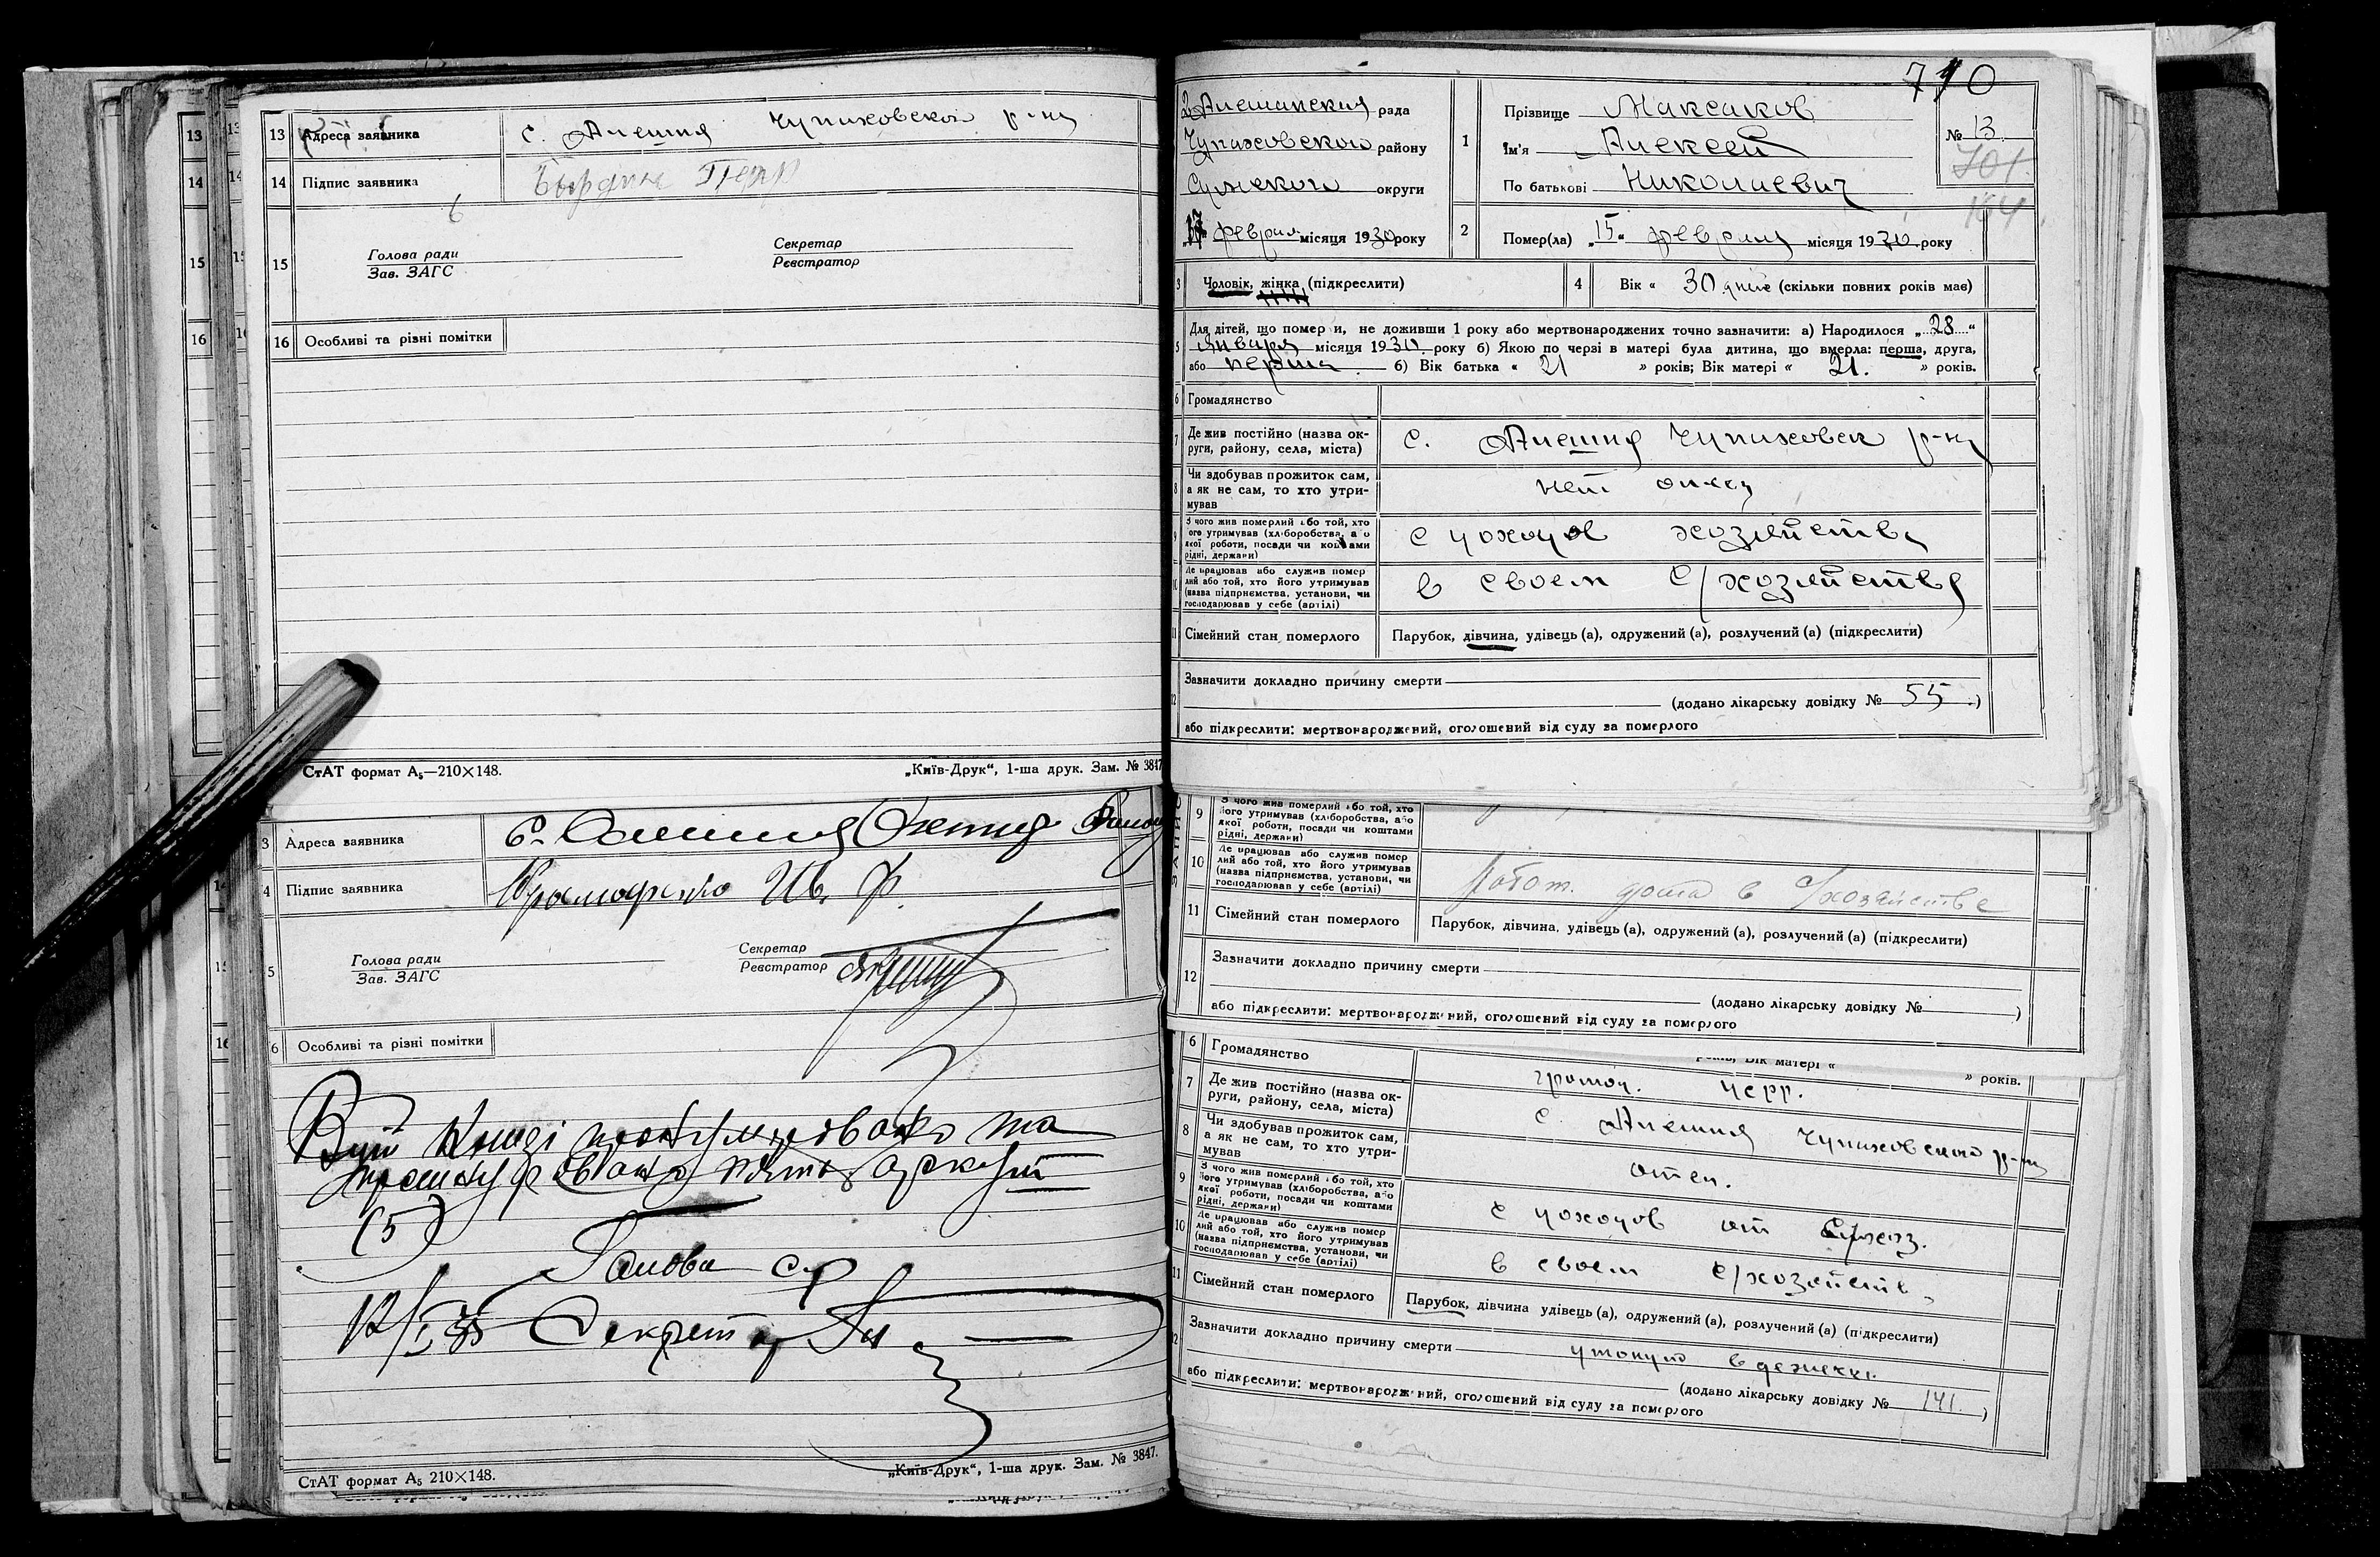 13 Адреса заявника с. Алешня Чупаховского р-на
14 Підпис заявника
15 Голова ради Секретар
Зав. ЗАГС Реєстратор
16 Особливі та різні помітки
СтАТ формат А5—210×148. „Київ-Друк“, 1-ша друк. Зам. № 3847
3 Адреса заявника с.
4 Підпис заявника Крамаренко Ив. Ф.
5 Голова ради Секретар
Зав. ЗАГС Реєстратор
6 Особливі та різні помітки
Всій книзі пронумеровано та
прошнуровано пять аркуш
(5)
Голова с/р
Секретар
СтАТ формат А5 210×148. „Київ-Друк“, 1-ша друк. Зам. № 3847.
710
Алешанская рада
Чупаховского району
Сумского округи
17 феврал місяця 1930 року
1 Прізвище Максаков
Ім'я Алексей
По батькові Николаевич
№ 13
701
164
2 Помер(ла) „15“ февраля місяця 1930 року
3 Чоловік, жінка (підкреслити)
4 Вік « 30 дней (скільки повних років має)
5 Для дітей, що померли, не доживши 1 року або мертвонароджених точно зазначити: а) Народилося „28“
января місяця 1930 року б) Якою по черзі в матері була дитина, що вмерла: перша, друга,
або перша б) Вік батька « 21 » років; Вік матері « 21. » років.
6 Громадянство
7 Де жив постійно (назва ок-
руги, району, села, міста) с. Алешня Чупаховск р-на
8 Чи здобував прожиток сам,
а як не сам, то хто утри-
мував нет отец
9 З чого жив померлий або той, хто
його утримував (хліборобства, або
якої роботи, посади чи коштами
рідні, держави) с доходов хозяйства
10 Де працював або служив помер
лий або той, хто його утримував
(назва підприємства, установи, чи
господарював у себе (артілі) в своем с/хозяйстве
11 Сімейний стан померлого Парубок, дівчина, удівець (а), одружений (а), розлучений (а) (підкреслити)
12 Зазначити докладно причину смерти
(додано лікарську довідку № 55.)
або підкреслити: мертвонароджений, оголошений від суду за померлого
9 З чого жив померлий або той, хто
його утримував (хліборобства, або
якої роботи, посади чи коштами
рідні, держави)
10 Де працював або служив помер
лий або той, хто його утримував
(назва підприємства, установи, чи
господарював у себе (артілі) Работ. дома в с/хозяйстве
11 Сімейний стан померлого Парубок, дівчина, удівець (а), одружений (а), розлучений (а) (підкреслити)
12 Зазначити докладно причину смерти
(додано лікарську довідку № )
або підкреслити: мертвонароджений, оголошений від суду за померлого
років; Вік матері « » років.
6 Громадянство
7 Де жив постійно (назва ок-
руги, району, села, міста) с. Алешня Чупаховского р-на
8 Чи здобував прожиток сам,
а як не сам, то хто утри-
мував отец.
9 З чого жив померлий або той, хто
його утримував (хліборобства, або
якої роботи, посади чи коштами
рідні, держави) с доходов от с/хоз.
10 Де працював або служив помер
лий або той, хто його утримував
(назва підприємства, установи, чи
господарював у себе (артілі) в своем с/хозяйств
11 Сімейний стан померлого Парубок, дівчина удівець (а), одружений (а), розлучений (а) (підкреслити)
12 Зазначити докладно причину смерти утонул в
(додано лікарську довідку № 141.)
або підкреслити: мертвонароджений, оголошений від суду за померлого